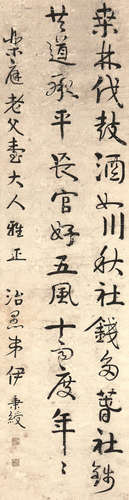 桑林伐鼓酒如川秋社錢多春社錢
共道承平長官好五風十雨度年〻
樂庭老父臺大人雅正
治愚弟伊秉綬